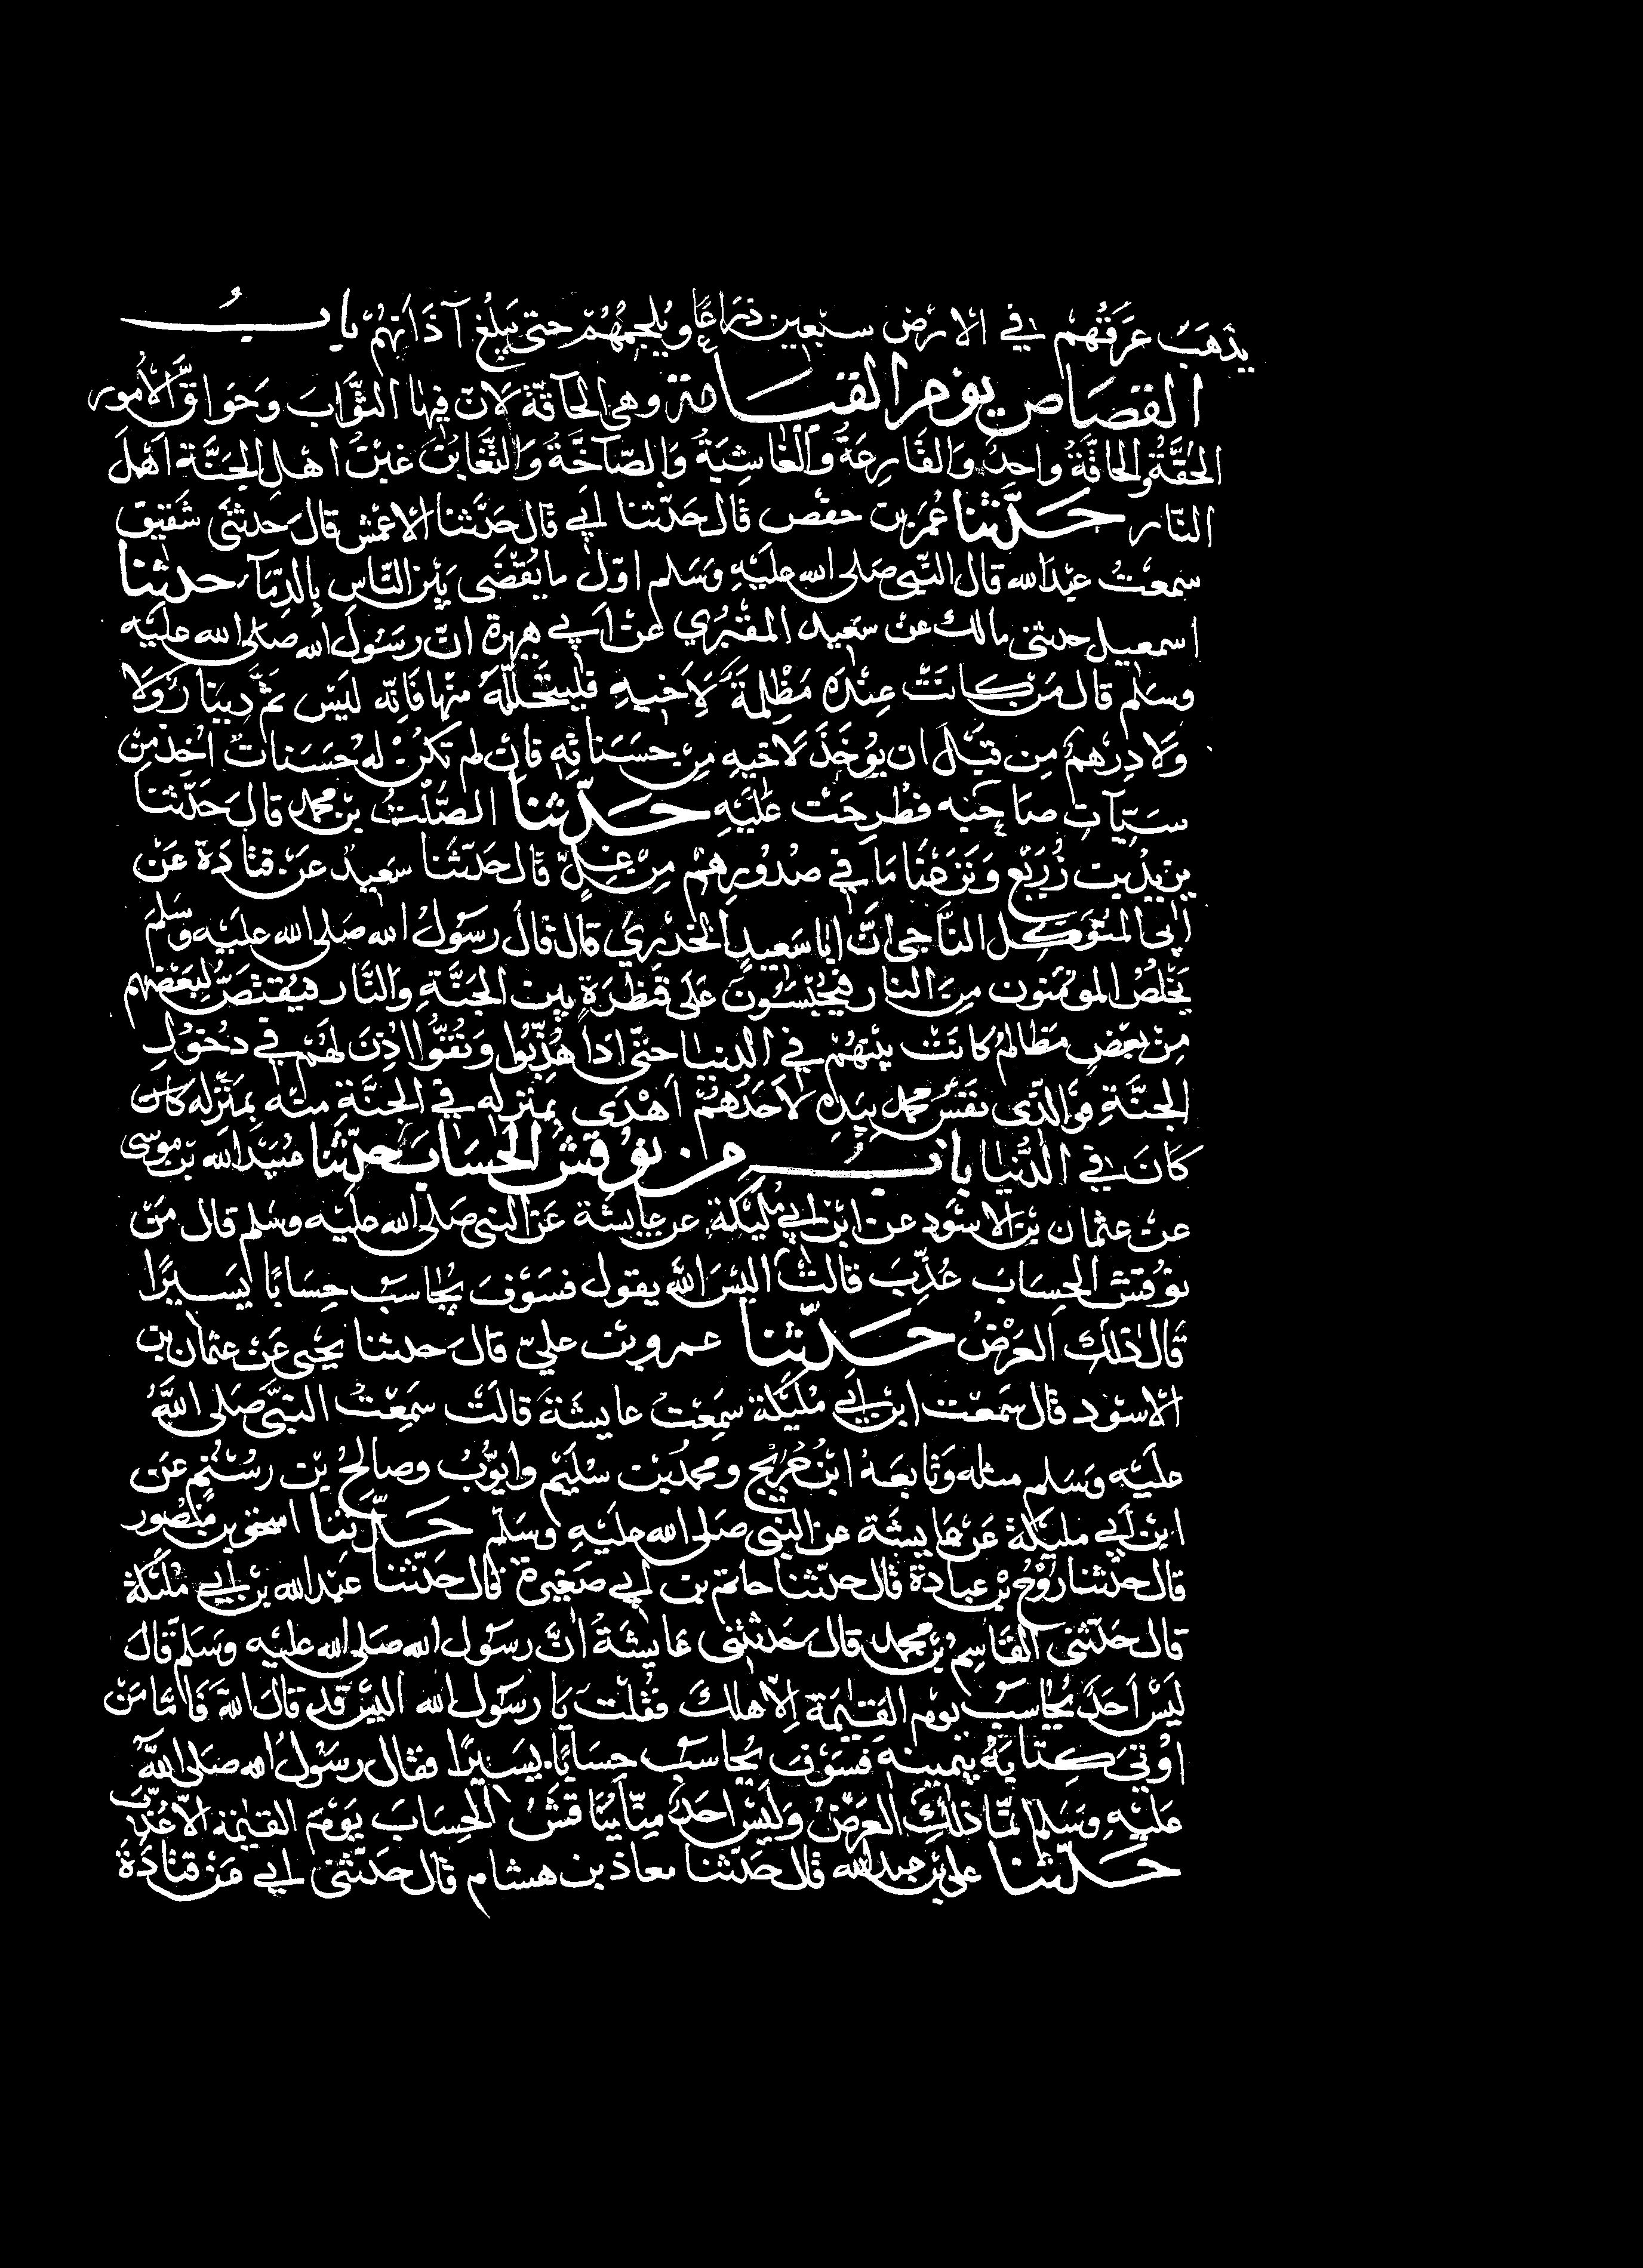 يذهب عرقهم في الارض سبعين ذراعا ويلجمهم حتى يبلغ آذانهم باب
القصاص يوم القيامة وهي الحاقة لان فيها الثواب وحواق الامور
الحقة والحاقة واحد والقارعة والغاشية والصاخة والتغابن غبن اهل الجنة اهل
النار حدثنا عمر بن حفص قال حدثنا ابي قال حدثنا الاعمش قال حدثني شقيق
سمعت عبد الله قال النبي صلى الله عليه وسلم اول ما يقضى بين الناس بالدماء حدثنا
اسمعيل حدثني مالك عن سعيد المقبري عن ابي هريرة ان رسول الله صلى الله عليه
وسلم قال من كانت عنده مظلمة لاخيه فليتحلله منها فانه ليس ثم دينار ولا
ولا درهم من قبل ان يوخذ لاخيه من حسناته فان لم تكن له حسنات اخذ من
سيآت صاحبه فطرحت عليه حدثنا الصلت بن محمد قال حدثنا
يزيد بن زريع ونزعنا ما في صدورهم من غل قال حدثنا سعيد عن قتادة عن
ابي المتوكل الناجي ان ابا سعيد الخدري قال قال رسول الله صلى الله عليه وسلم
يخلص المومنون من النار فيحبسون على قنطرة بين الجنة والنار فيقتص لبعضهم
من بعض مظالم كانت بينهم في الدنيا حتى اذا هذبوا ونقوا اذن لهم في دخول
الجنة فوالذي نفس محمد بيده لاحدهم اهدى بمنزله في الجنة منه بمنزله كان
كان في الدنيا باب من نوقش الحساب حدثنا عبيد الله بن موسى
عن عثمان بن الاسود عن ابن ابي مليكة عن عايشة عن النبي صلى الله عليه وسلم قال من
نوقش الحساب عذب قالت اليس الله يقول فسوف يحاسب حسابا يسيرا
قال ذلك العرض حدثنا عمرو بن علي قال حدثنا يحيى عن عثمان بن
الاسود قال سمعت ابن ابي مليكة سمعت عايشة قالت سمعت النبي صلى الله
عليه وسلم مثله وتابعه ابن جريج ومحمد بن سليم وايوب وصالح بن رستم عن
ابن ابي مليكة عن عايشة عن النبي صلى الله عليه وسلم حدثنا اسحق بن منصور
قال حدثنا روح بن عبادة قال حدثنا حاتم بن ابي صغيرة قال حدثنا عبد الله بن ابي مليكة
قال حدثني القاسم بن محمد قال حدثتني عايشة ان رسول الله صلى الله عليه وسلم قال
ليس احد يحاسب يوم القيمة الا هلك فقلت يا رسول الله اليس قد قال الله فاما من
اوتي كتابه بيمينه فسوف يحاسب حسابا يسيرا فقال رسول الله صلى الله
عليه وسلم انما ذلك العرض وليس احد منا يناقش الحساب يوم القيمة الا عذب
حدثنا علي بن عبد الله قال حدثنا معاذ بن هشام قال حدثني ابي عن قتادة